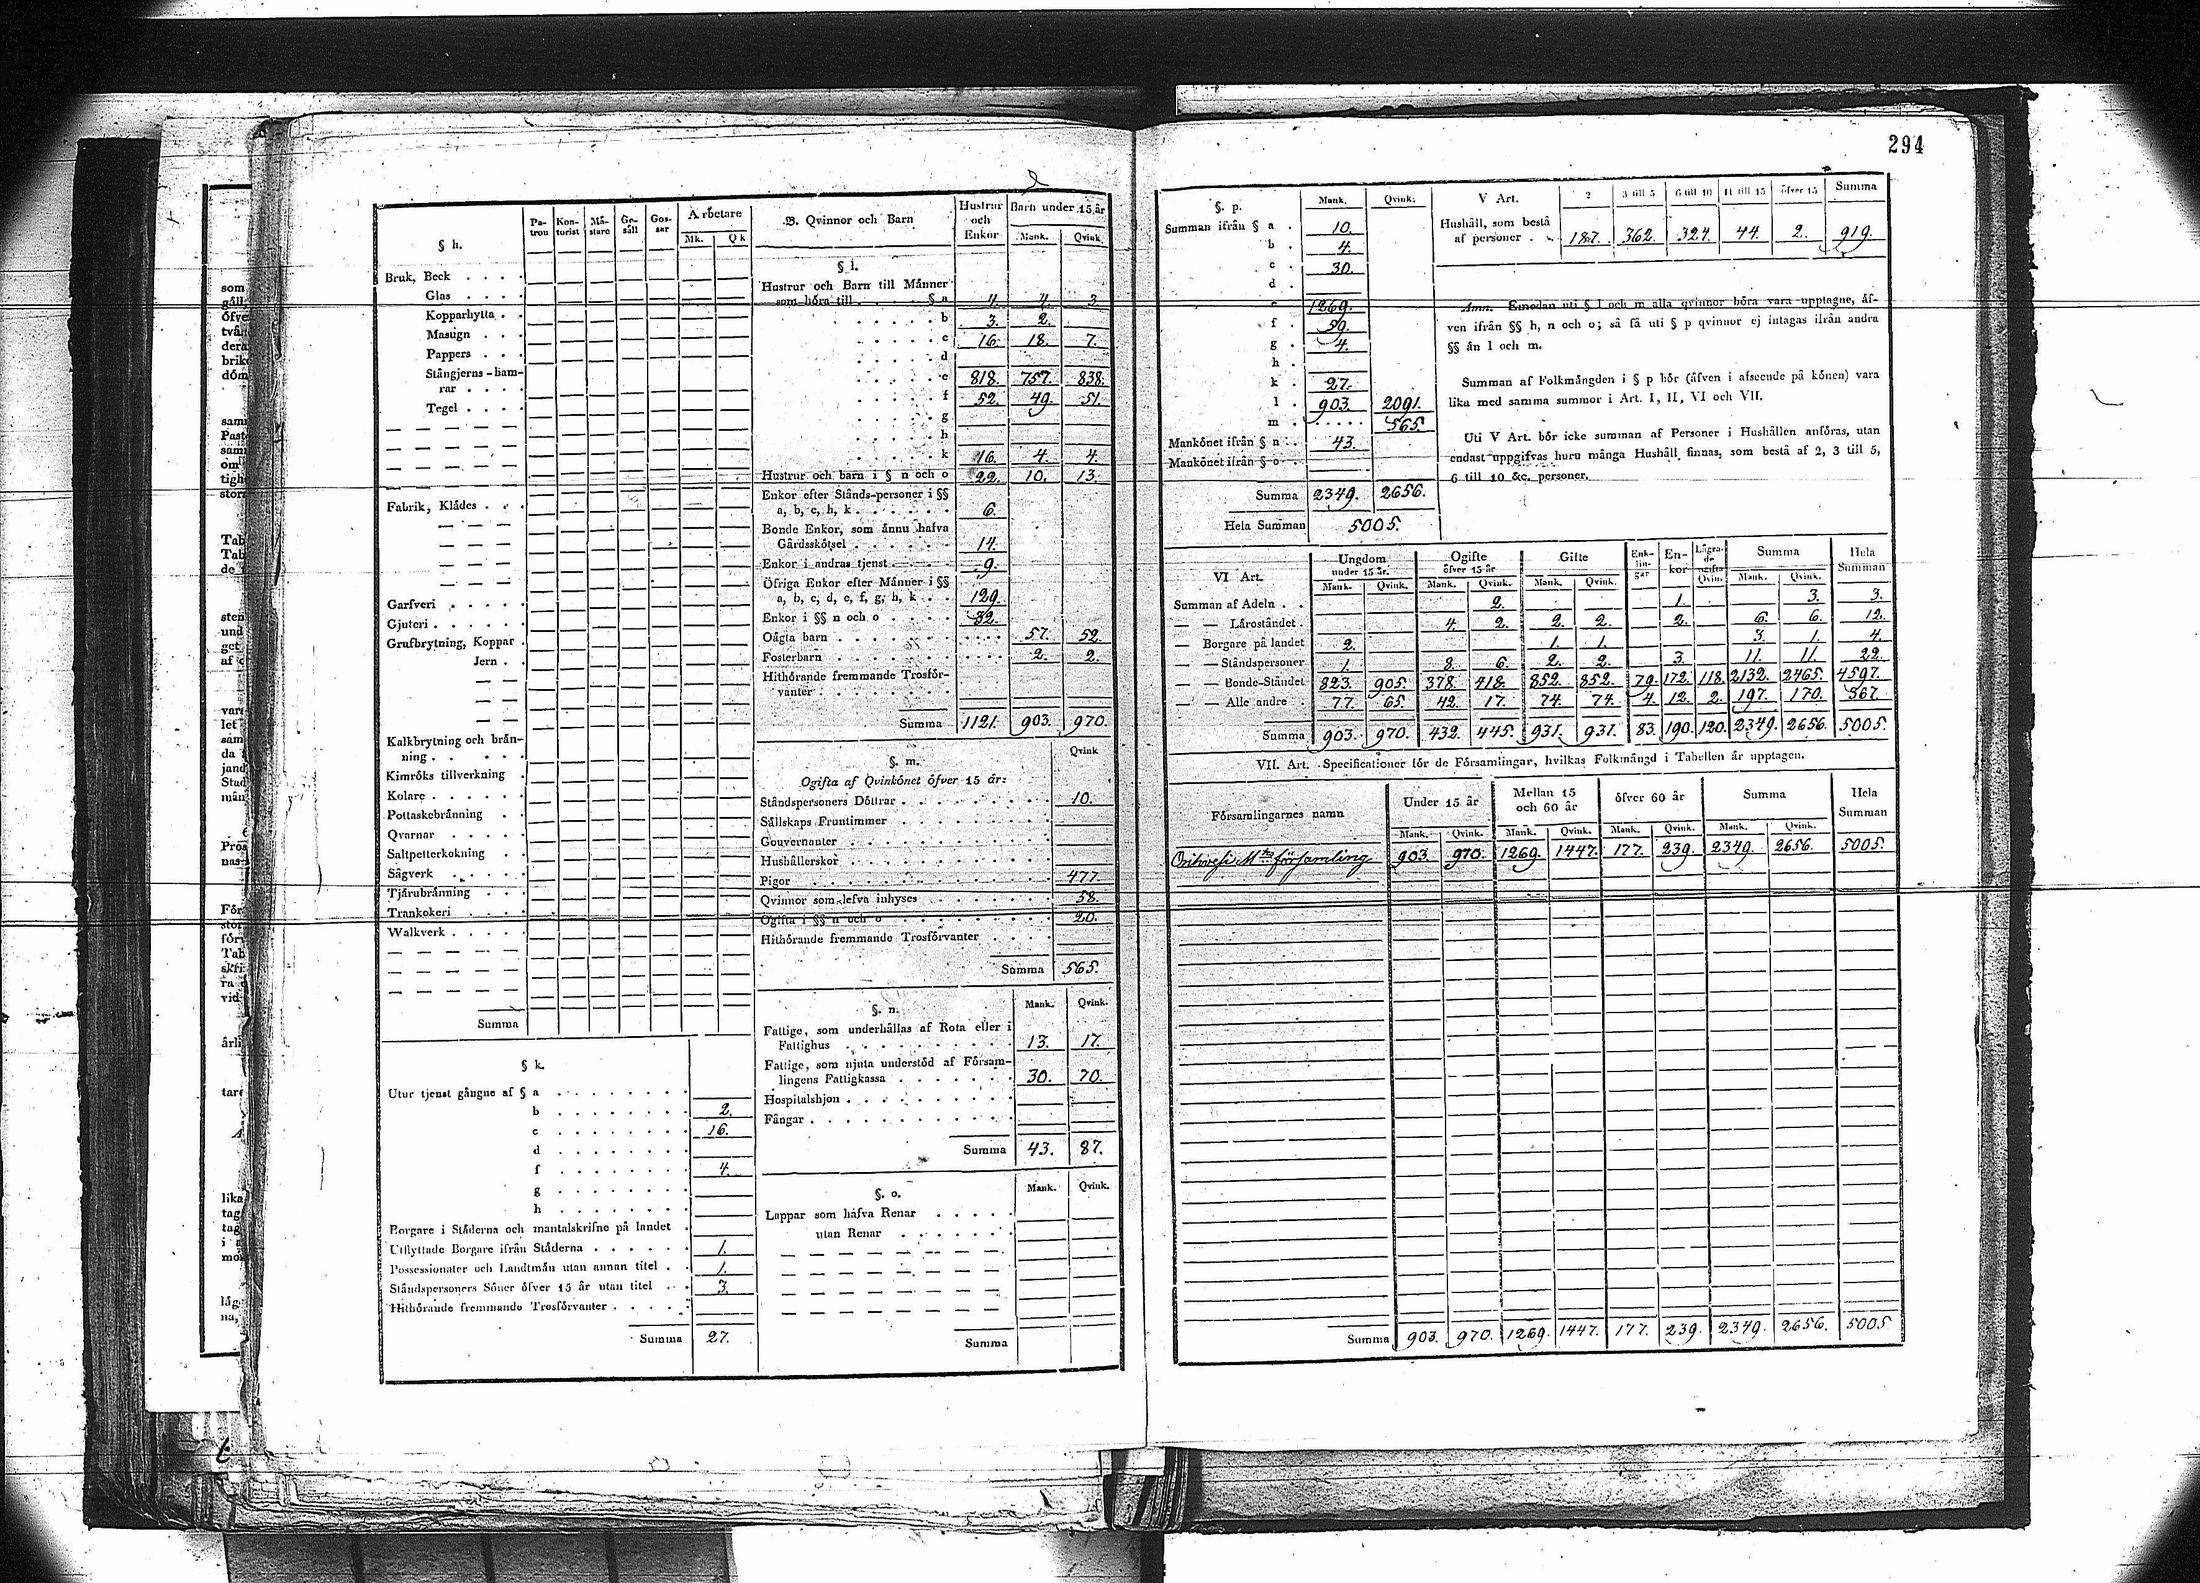 294
2
§ h.
Pa-tron Kon-torist Mä-stare Ge-säll Gos-sar Arbetare
Mk. Qk
Bruk, Beck . . . .
Glas . . . .
Kopparhytta . .
Masugn . . .
Pappers . . .
Stångjerns-ham-
rar . . . .
Tegel . . . .
Fabrik, Klädes . . .
Garfveri . . . . .
Gjuteri . . . . . .
Grufbrytning, Koppar .
Jern . .
Kalkbrytning och brän-
ning . . . . . .
Kimröks tillverkning .
Kolare . . . . . .
Pottaskebränning . .
Qvarnar . . . . .
Saltpetterkokning . .
Sågverk . . . . .
Tjärubränning . . .
Trankokeri . . . .
Walkverk . . . . .
Summa
§ k.
Utur tjenst gångne af § a . . . . . . . .
b . . . . . . . . 2.
c . . . . . . . . 16.
d . . . . . . . .
f . . . . . . . . 4.
g . . . . . . . .
h . . . . . . . .
Borgare i Städerna och mantalskrifne på landet .
Utflyttade Borgare ifrån Städerna . . . . . . 1.
Possessionater och Landtmän utan annan titel . . 1.
Ståndspersoners Söner öfver 15 år utan titel . . 3.
Hithörande fremmande Trosförvanter . . . . .
Summa 27.
B. Qvinnor och Barn
Hustrur och Enkor Barn under 15 år
Mank. Qvink.
§ l.
Hustrur och Barn till Männer
som höra till . . . . . § a 4. 4. 3.
b 3. 2.
c 16. 18. 7.
d
e 818. 757. 838.
f 52. 49. 51.
g
h
k 16. 4. 4.
Hustrur och barn i § n och o 22. 10. 13.
Enkor efter Stånds-personer i §§
a, b, c, h, k . . . . . . 6.
Bonde Enkor, som ännu hafva
Gårdsskötsel . . . . . . 14.
Enkor i andras tjenst . . . . 9.
Öfriga Enkor efter Männer i §§
a, b, c, d, e, f, g, h, k . . 129.
Enkor i §§ n och o . . . . . 32.
Oägta barn . . . . . . . . 57. 52.
Fosterbarn . . . . . . . . 2. 2.
Hithörande fremmande Trosför-
vanter . . . . . . . . .
Summa 1121. 903. 970.
§. m. Qvink
Ogifta af Qvinkönet öfver 15 år:
Ståndspersoners Döttrar . . . . . . . . . 10.
Sällskaps Fruntimmer . . . . . . . . . .
Gouvernanter . . . . . . . . . . . . .
Hushållerskor . . . . . . . . . . . . .
Pigor . . . . . . . . . . . . . . . 477.
Qvinnor som lefva inhyses . . . . . . . . 58.
Ogifta i §§ n och o . . . . . . . . . . 20.
Hithörande fremmande Trosförvanter . . . .
Summa 565.
§. n. Mank. Qvink.
Fattige, som underhållas af Rota eller i
Fattighus . . . . . . . . . 13. 17.
Fattige, som njuta understöd af Försam-
lingens Fattigkassa . . . . . . . 30. 70.
Hospitalshjon . . . . . . . . . .
Fångar . . . . . . . . . . . .
Summa 43. 87.
§. o. Mank. Qvink.
Lappar som hafva Renar . . . . .
utan Renar . . . . . .
Summa
§. p. Mank. Qvink.
Summan ifrån § a . 10.
b . 4.
c . 30.
d .
e . 1269.
f . 59.
g . 4.
h .
k . 27.
l . 903. 2091.
m . . . . . . 565.
Mankönet ifrån § n . . 43.
Mankönet ifrån § o . .
Summa 2349. 2656.
Hela Summan 5005.
V Art. 2 3 till 5 6 till 10 11 till 15 öfver 15 Summa
Hushåll, som bestå
af personer . . 187. 362. 324. 44. 2. 919.
Anm. Emedan uti § l och m alla qvinnor böra vara upptagne, äf-
ven ifrån §§ h, n och o; så få uti § p qvinnor ej intagas ifrån andra
§§ än l och m.
Summan af Folkmängden i § p bör (äfven i afseende på könen) vara
lika med samma summor i Art. I, II, VI och VII.
Uti V Art. bör icke summan af Personer i Hushållen anföras, utan
endast uppgifvas huru många Hushåll finnas, som bestå af 2, 3 till 5,
6 till 10 &c. personer.
VI Art. Ungdom under 15 år. Ogifte öfver 15 år Gifte Enk-lin-gar En-kor Lägra-de ogifta Qvin. Summa Hela Summan
Mank. Qvink. Mank. Qvink. Mank. Qvink. Mank. Qvink.
Summan af Adeln . . 2. 1. 3. 3.
— — Läroståndet . 4. 2. 2. 2. 2. 6. 6. 12.
— Borgare på landet 2. 1. 1. 3. 1. 4.
— — Ståndspersoner 1. 8. 6. 2. 2. 3. 11. 11. 22.
— — Bonde-Ståndet 823. 905. 378. 418. 852. 852. 79. 172. 118. 2132. 2465. 4597.
— — Alle andre . 77. 65. 42. 17. 74. 74. 4. 12. 2. 197. 170. 367.
Summa 903. 970. 432. 445. 931. 931. 83. 190. 120. 2349. 2656. 5005.
VII. Art. Specificationer för de Församlingar, hvilkas Folkmängd i Tabellen är upptagen.
Församlingarnes namn Under 15 år Mellan 15 och 60 år öfver 60 år Summa Hela Summan
Mank. Qvink. Mank. Qvink. Mank. Qvink. Mank. Qvink.
Orihvesi M församling 903. 970. 1269. 1447. 177. 239. 2349. 2656. 5005.
Summa 903. 970. 1269. 1447. 177. 239. 2349. 2656. 5005